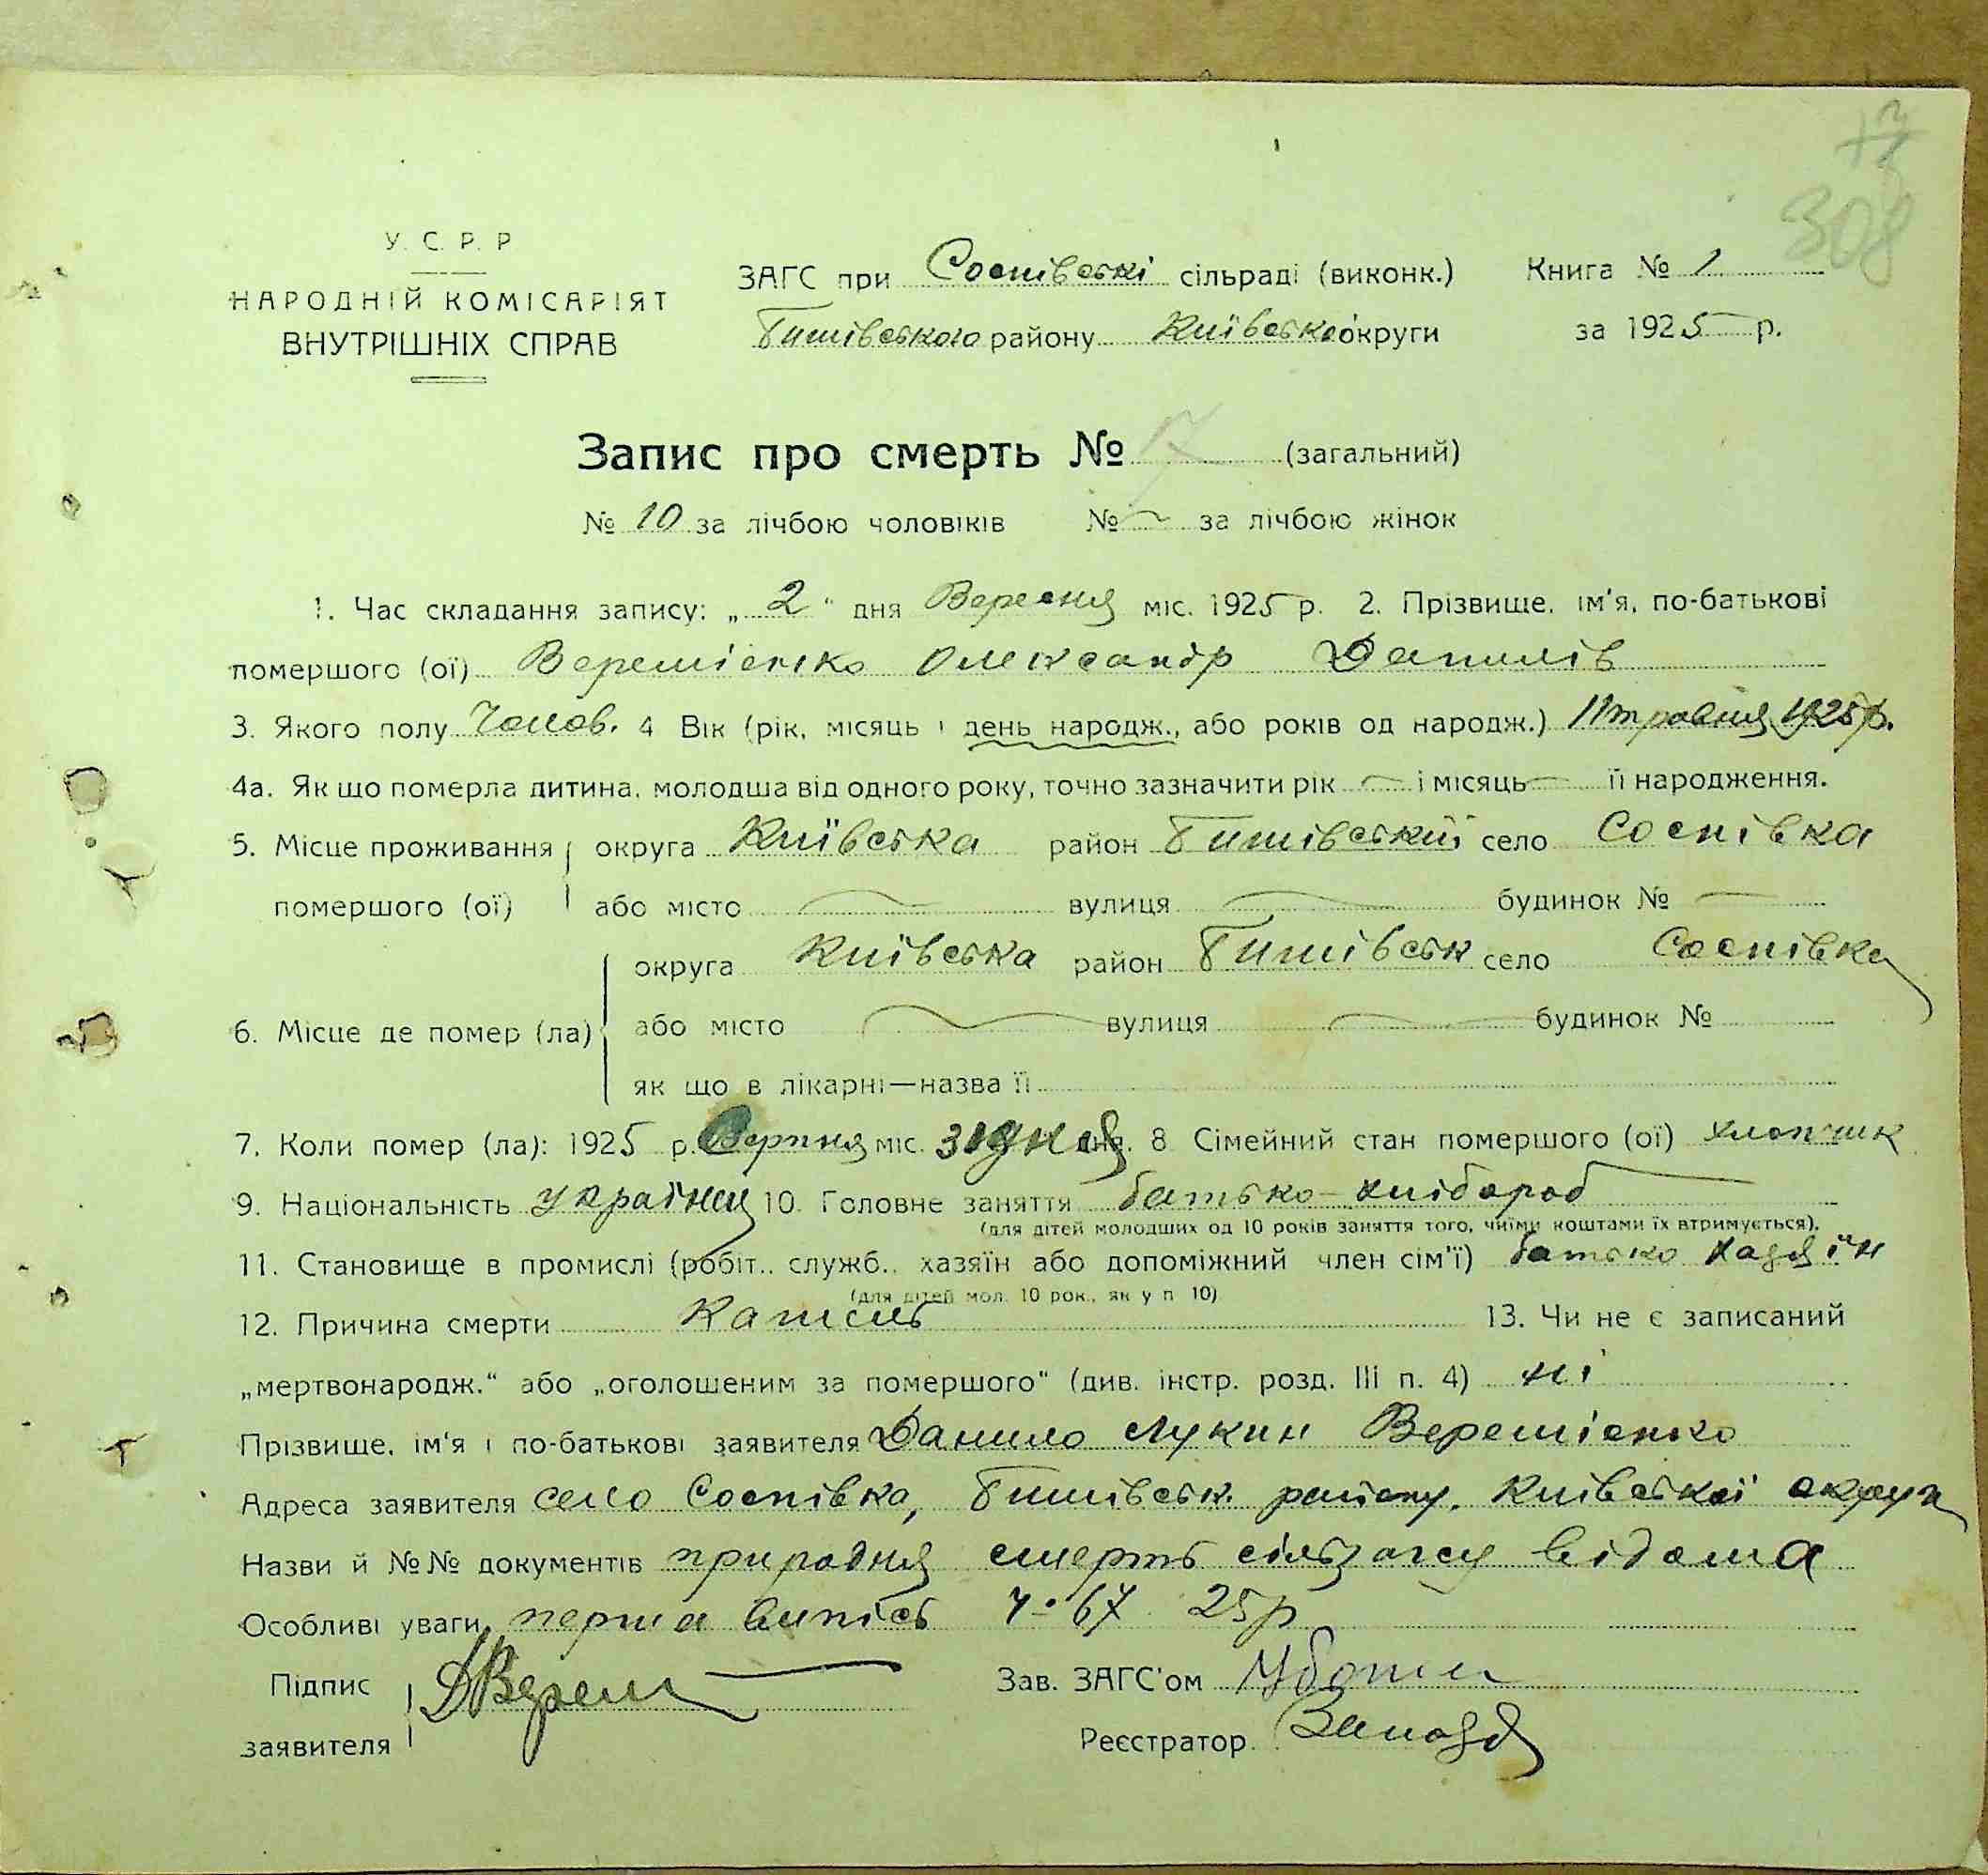 308
У. С. Р. Р
НАРОДНІЙ КОМІСАРІЯТ
ВНУТРІШНІХ СПРАВ
ЗАГС при Соснівські сільраді (виконк.) Книга № 1
Бишівського району Київсько округи за 1925 р.
Запис про смерть № 17 (загальний)
№ 10 за лічбою чоловіків № за лічбою жінок
1. Час складання запису: „2“ дня Вересня міс. 1925 р. 2. Прізвище, ім'я, по-батькові
помершого (ої) Веремієнко Олександр Данилів
3. Якого полу Чолов. 4 Вік (рік, місяць і день народж., або років од народж.) 11 травня 1925 р.
4а. Як що померла дитина, молодша від одного року, точно зазначити рік — і місяць — її народження.
5. Місце проживання округа Київська район Бишівський село Соснівка
помершого (ої) або місто — вулиця — будинок № —
округа Київська район Бишівськ село Соснівка
6. Місце де помер (ла) або місто — вулиця — будинок №
як що в лікарні—назва її
7. Коли помер (ла): 1925 р. Серпня міс. дня. 8 Сімейний стан помершого (ої) хлопчик
9. Національність українец 10. Головне заняття батько-хлібороб
(для дітей молодших од 10 років заняття того, чиїми коштами їх втримується).
11. Становище в промислі (робіт., служб., хазяїн або допоміжний член сім'ї) батько хазяїн
(для дітей мол. 10 рок., як у п 10)
12. Причина смерти Кашель 13. Чи не є записаний
„мертвонародж.“ або „оголошеним за помершого“ (див. інстр. розд. III п. 4) ні
Прізвище, ім'я і по-батькові заявителя Данило Лукин Веремієнко
Адреса заявителя село Соснівка, Бишівськ. району, Київської округи
Назви й №№ документів природня смерть сільзагсу відома
Особливі уваги перша випісь 67 25р
Підпис Д Верем Зав. ЗАГС'ом
заявителя Реєстратор